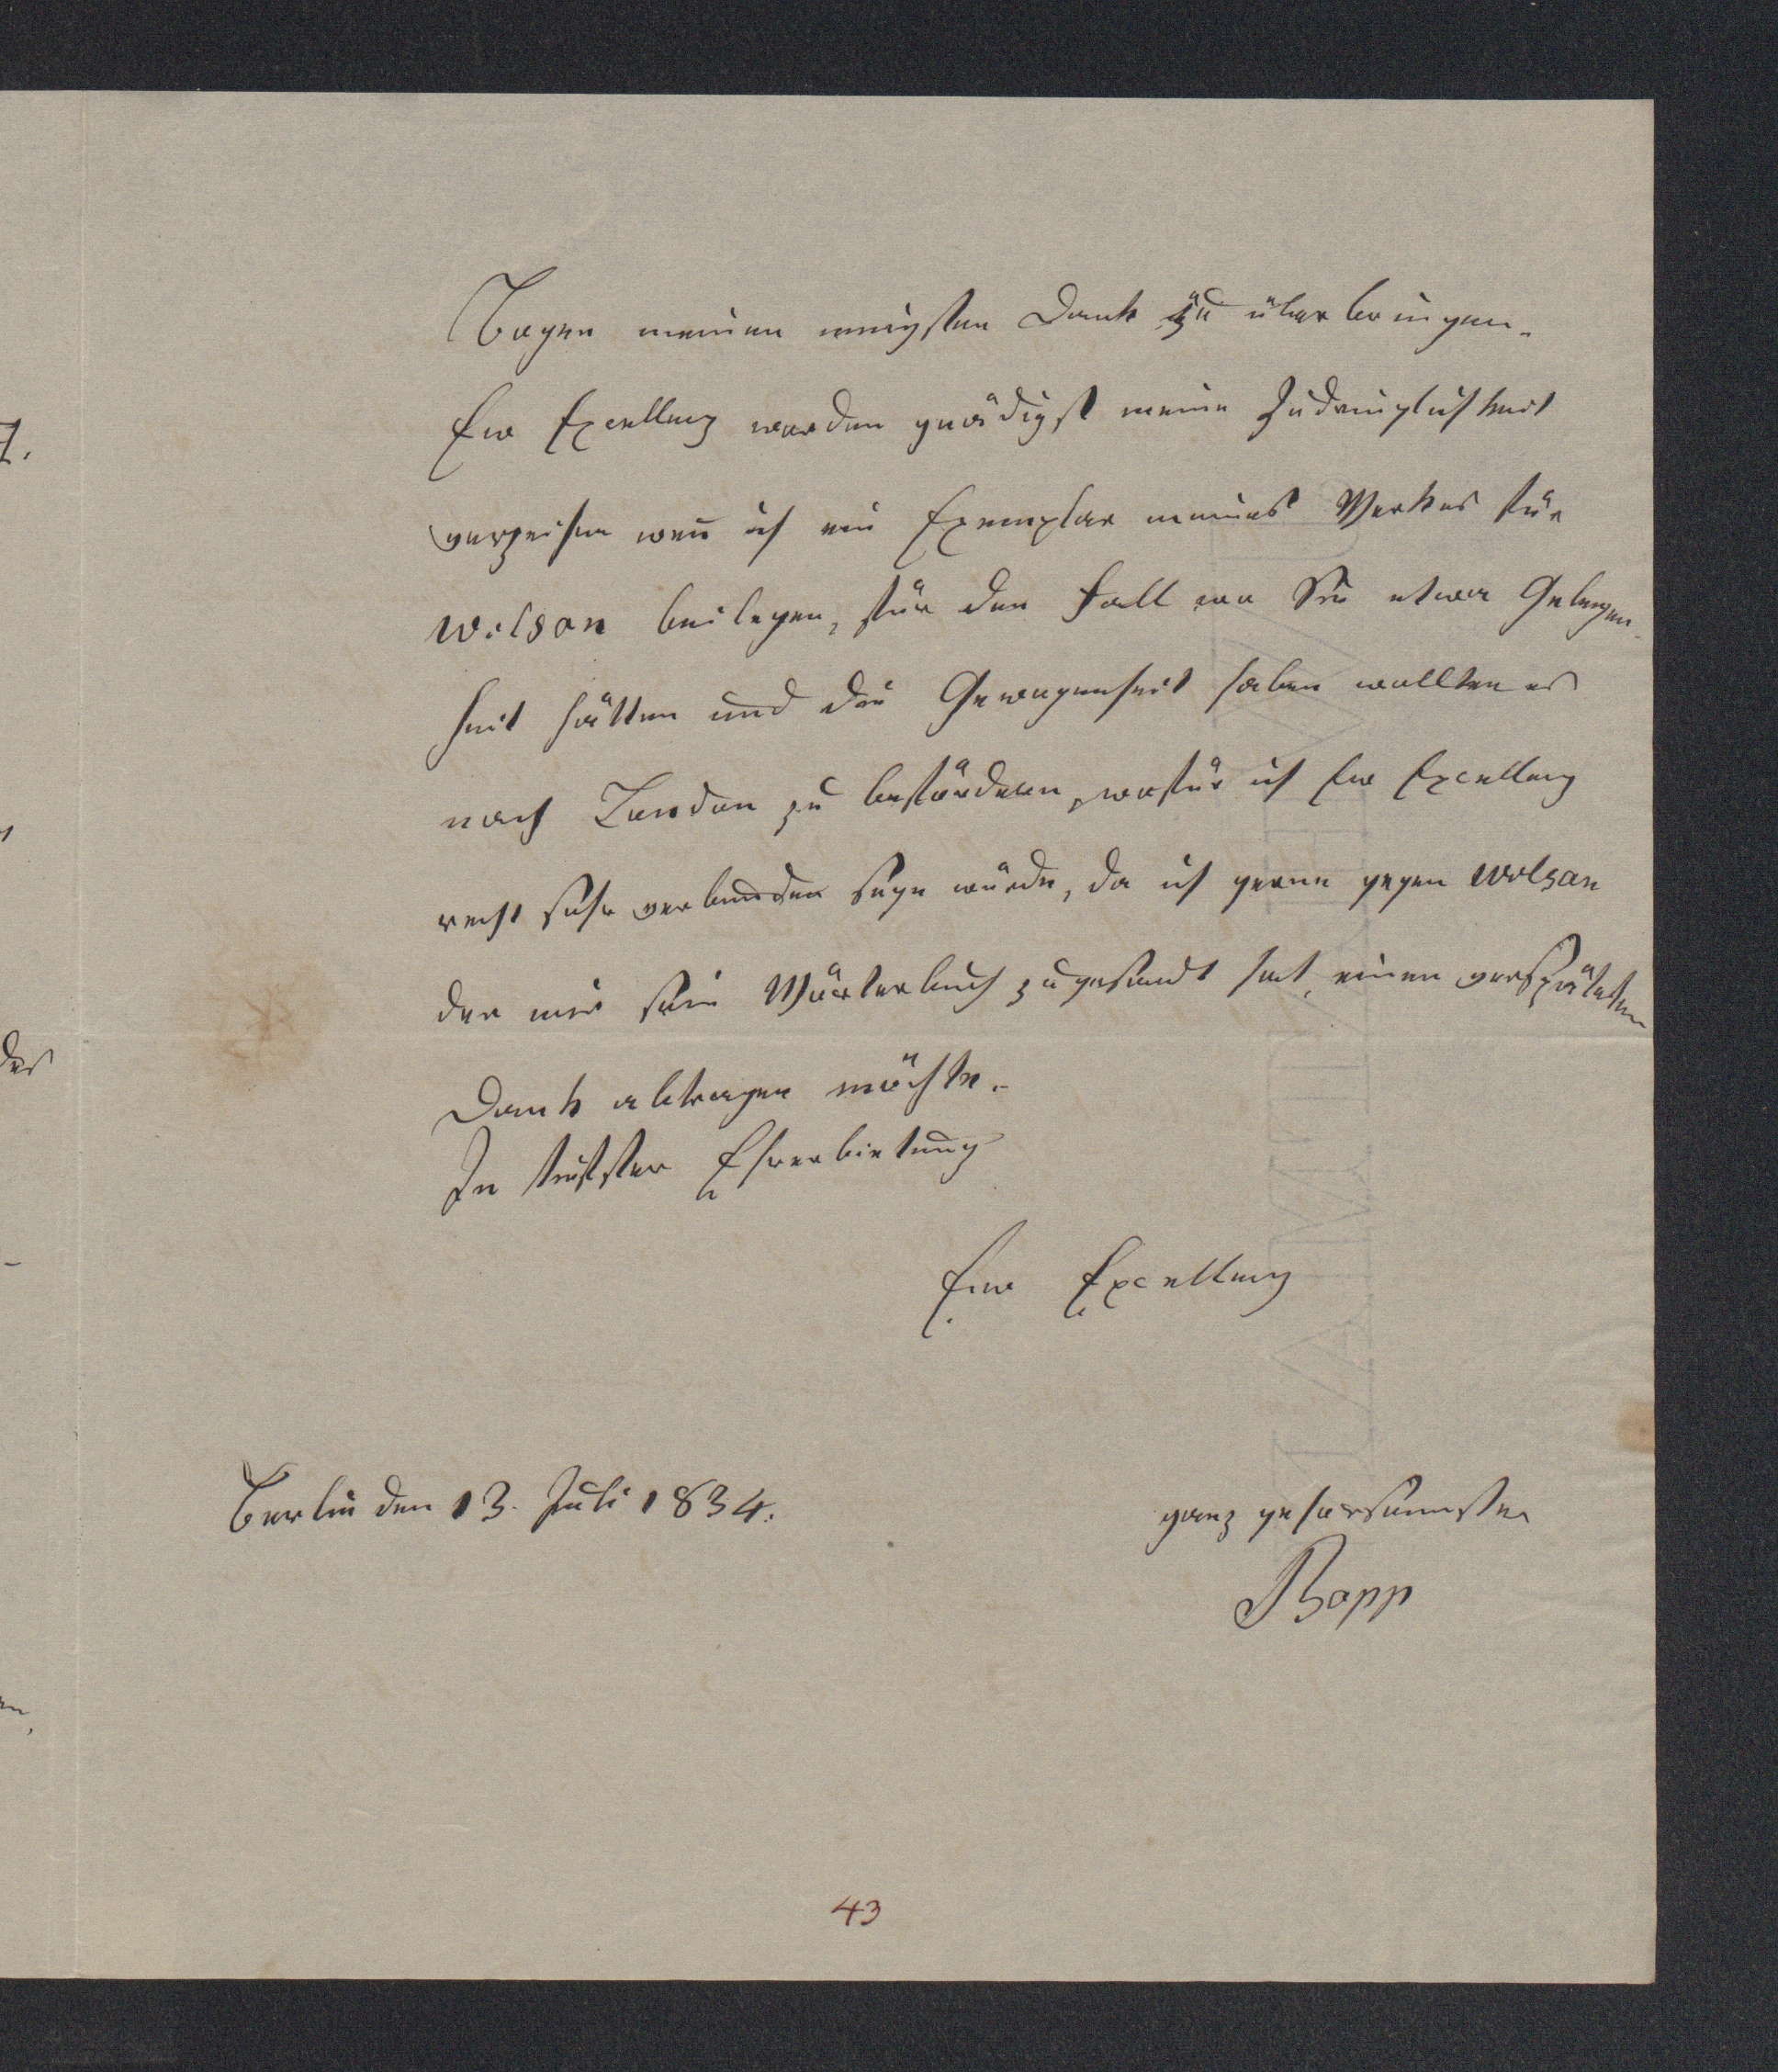 Bogen meinen innigsten Dank zu überbringen.
Ew Excellenz werden gnädigst meine Zudringlichkeit
verzeihen wen̄ ich ein Exemplar meines Werkes für
Wilson beilegen, für den Fall wo Sie etwa Gelegen-
heit hätten und die Gewogenheit haben wollten es
nach London zu befördern, wofür ich Ew Excellenz
recht sehr verbunden seyn würde, da ich gerne gegen Wilson
der mir sein Wörterbuch zugesandt hat, einen verspäteten
Dank abtragen möchte.
In tiefster Ehrerbietung
Euer Excellenz
Berlin den 13. Juli 1834.
ganz gehorsamster
Bopp
43